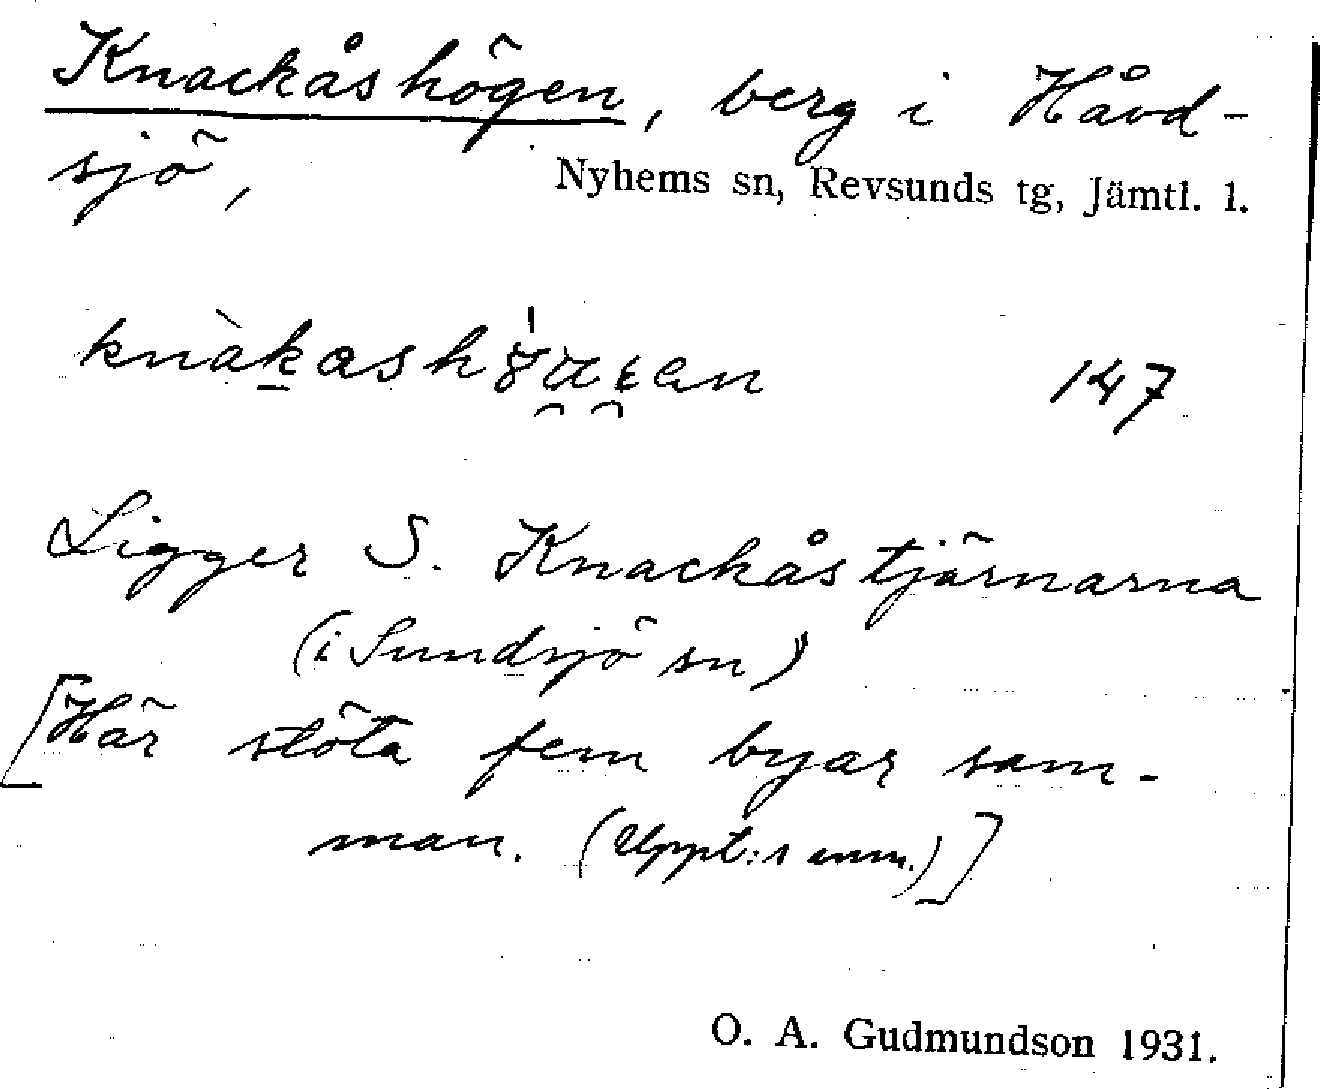 Knackåshögen, berg i Håvd-
sjö, Nyhems sn, Revsunds tg, Jämtl. l.
147
Ligger S. Knackåstjärnarna
(i Sundsjö sn)
[Här stöta fem byar sam-
man. (Uppt:s anm.)]
O. A. Gudmundson 1931.